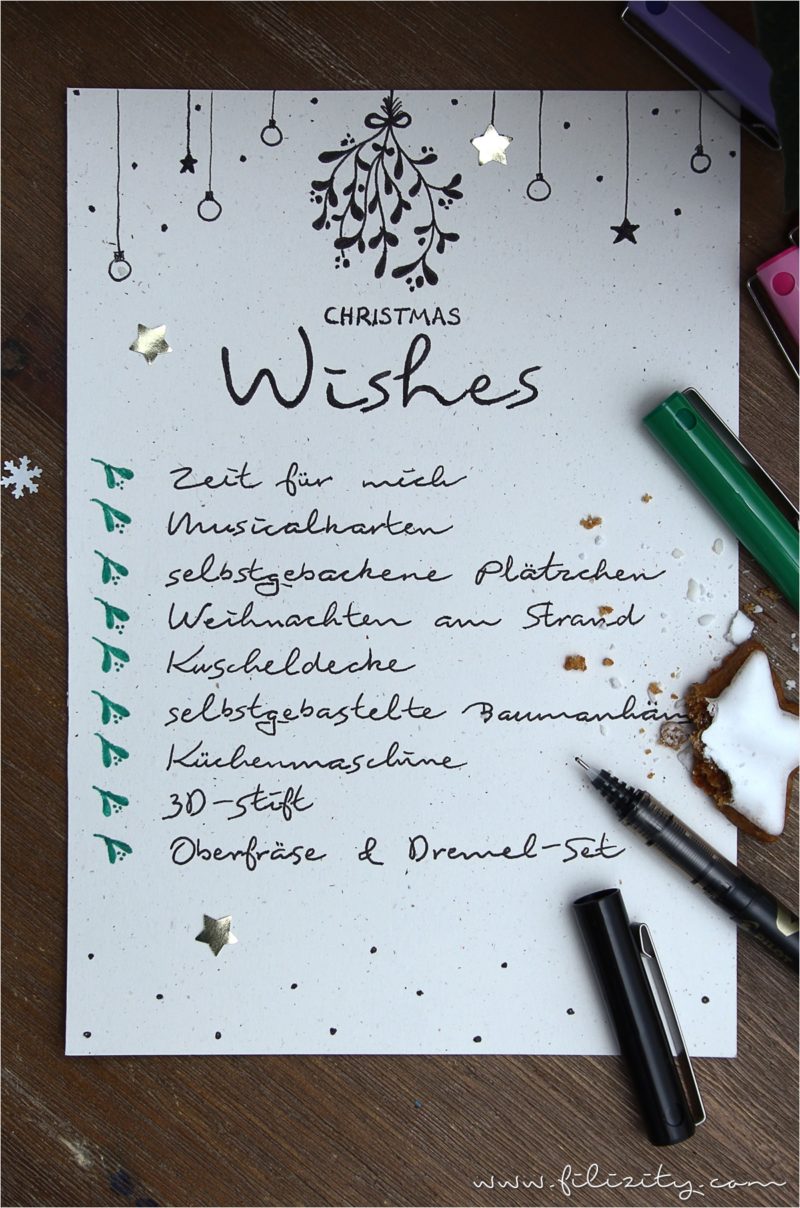 CHRISTMAS
Wishes
Zeit für mich
Musicalkarten
selbstgebackene Plätzchen
Weihnachten am Strand
Kuscheldecke
selbstgebastelte Baumanhän
Küchenmaschine
3D-Stift
Oberfräse & Dremel-Set
www.filizity.com